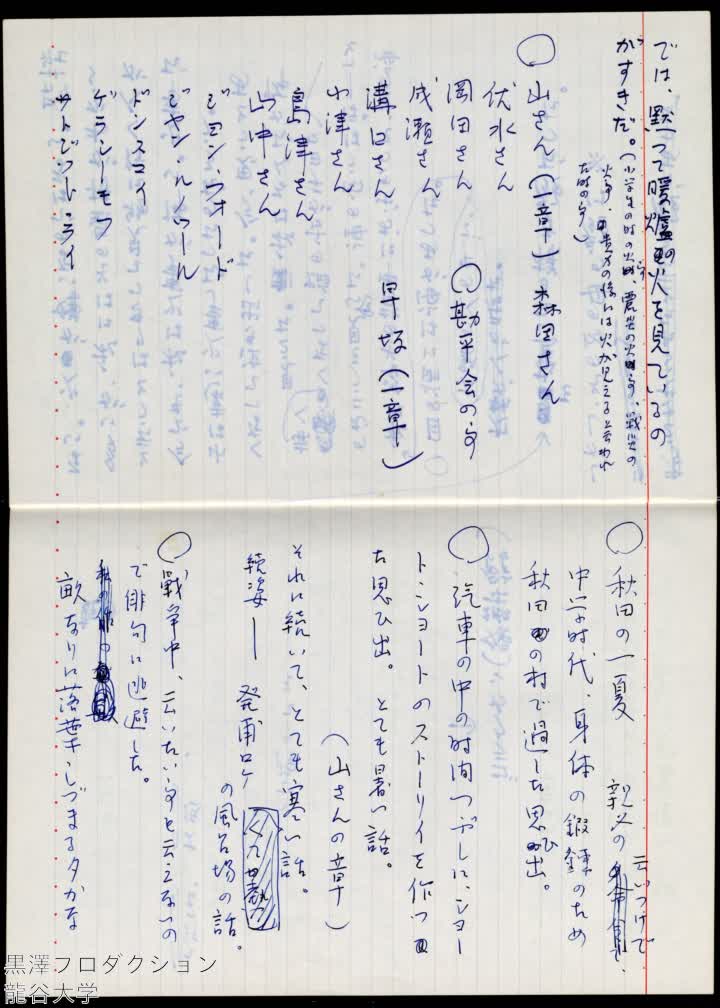 では、黙って暖爐の火を見ているの
がすきだ。(小学生の時の火事、震災の火事、戦災の
火事、
た時の事)
○山さん(一章) 森田さん
伏水さん
岡田さん ○勘平会の事
成瀬さん 早坂(一章)
溝口さん
小津さん
島津さん
山中さん
ジョン・フォード
ジャン・ルノワール
ドンスコイ
ゲラシーモフ
サトジット・ライ
○秋田の一夏 親父の云いつけで、
中学時代、身体の鍛錬のため
秋田の村で過した思ひ出。
○汽車の中の時間つぶしに、ショー
ト・ショートのストーリイを作つ
た思ひ出。とても暑い話。
(山さんの章)
それに続いて、とても寒い話。
続姿― 発甫ロケ
の風呂場の話。
○戦争中、云いたい事を云えないの
で俳句に逃避した。
畝なりに落葉しづまる夕かな
黒澤プロダクション
龍谷大学